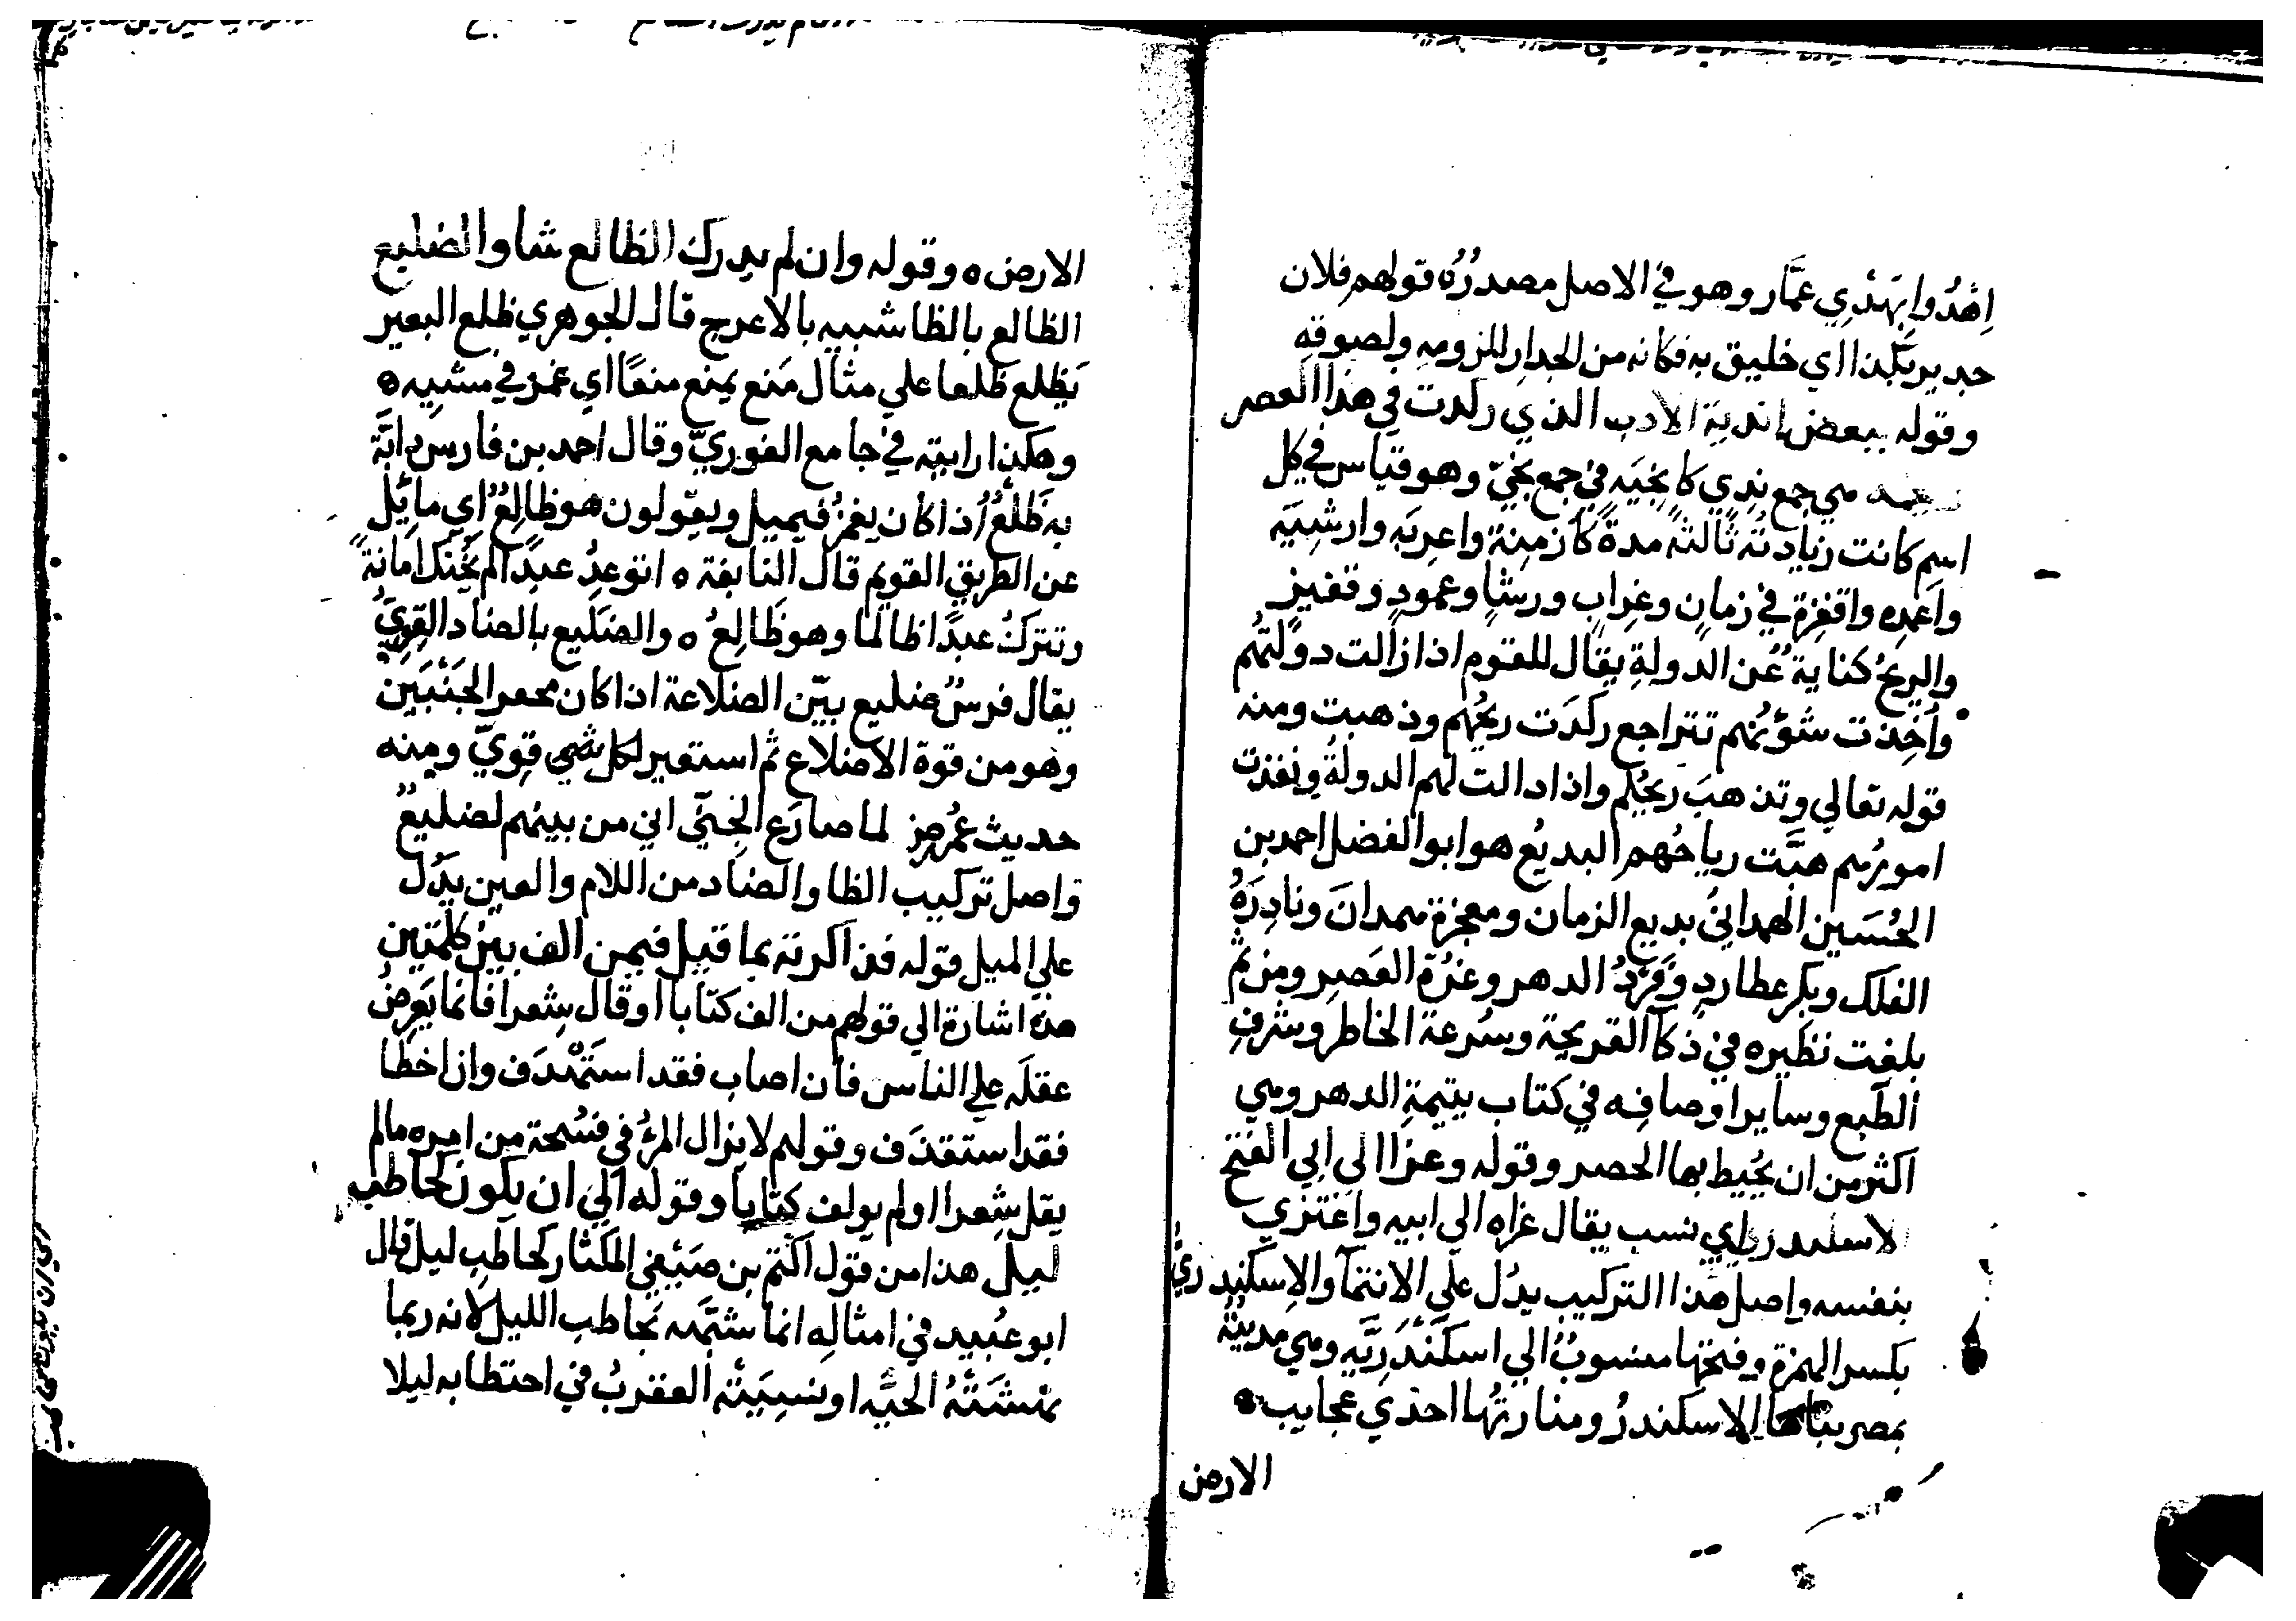 اِهْدُوا بِهَدْيِ عمَّار وهو في الاصل مصدرُهُ قولهم فلان
جدير بكذا اي خليق به فكانه من الجدار للزومه ولصوقه
وقوله ببعض اندية الادب الذي ركدت في هذا العصر
هي جمع ندي كانجيه في جمع نجيّ وهو قياس في كل
اسم كانت زيادته ثالثه مدة كازمنة واغربه وارشيه
واعمده واقفزة في زمان وغراب ورشا وعمود وقفيز
والريحُ كناية عن الدولة يقال للقوم اذا زالت دولتُهم
واَخِذت شؤُنهم تتراجع ركدَت ريحُهم وذهبت ومنه
قوله تعالي وتذهبَ ريحُكم واذا دالت لهم الدولة ونفذت
امورُهم هبَّت رياحُهم البديعُ هو ابو الفضل احمد بن
الحُسَين الهمدانيُ بديع الزمان ومعجزة همدان ونادِرَةُ
الفلك وبكر عطارد وفَرْدُ الدهر وغرة العَصِر ومن ثم
بلغت نظيره في ذكآ القريحة وسُرعة الخاطر وشرف
الطَّبع وساير اوصافه في كتاب يتيمة الدهر وهي
اكثر من ان يُحيط بها الحصر وقوله وعزا الي ابي الفتح
الاسكندري اي نسب يقال عزاه الي ابيه واعتزي
بنفسه واصل هذا التركيب يدُل علي الانتمآ والاِسكندريُّ
بكسر الهمزة وفتحها منسوبٌ الي اسكَنْدَرِيَّه وهي مدينةٌ
بمصر بناها الاسكندرُ ومنارتُها احدي عجايب
الارض
الارض ه وقوله وان لم يدرك الظالع شاو الضليع
الظالع بالظا شبيه بالاعرج قال الجوهري ظلع البعير
يَظلع ظلعا علي مثال مَنع يمنع منعًا اي غمز في مشيه ه
وهكذا رايته في جامع الغوريّ وقال احمد بن فارس دابّة
به ظَلْعٌ اذا كان يغمزُ فيميل ويقولون هو ظالِعٌ اي مائل
عن الطريق القويم قال النابغة ه اتوعِدُ عبدًا لم يَخُنك امانةً
وتتركُ عبدًا ظالما وهو ظَالِعُ ه والضليع بالضاد القويّ
يقال فرسٌ ضليع بيّن الضلاعة اذا كان مجفر الجَنْبَين
وهو من قوة الاضلاع ثم استعير لكل شي قويّ ومنه
حديث عُمر رض لما صارَع الجِنّي اني من بينهم لضليعٌ
واصل تركيب الظا والضاد من اللام والعين يدُل
علي الميل قوله فذاكرته بما قيل فيمن الف بين كلمتين
هذه اشارة الي قولهم من الف كتابا او قال شِعرا فانما يَعرِضُ
عقلَه علي الناس فان اصاب فقد استَهْدَف وان اخطا
فقد استقذَف وقولهم لا يزال المرُ في فسُحة من امره مالم
يقل شِعرا او لم يولف كتابا وقوله الي ان يكون كحاطب
ليل هذا من قول اكثم بن صَيْفي المكثار كحاطب ليل قال
ابو عُبيد في امثاله انما شبَّهه بحاطب الليل لانه ربما
نهشَتْهُ الحيَّه او لسبَتْه العقربُ في احتطابه ليلا